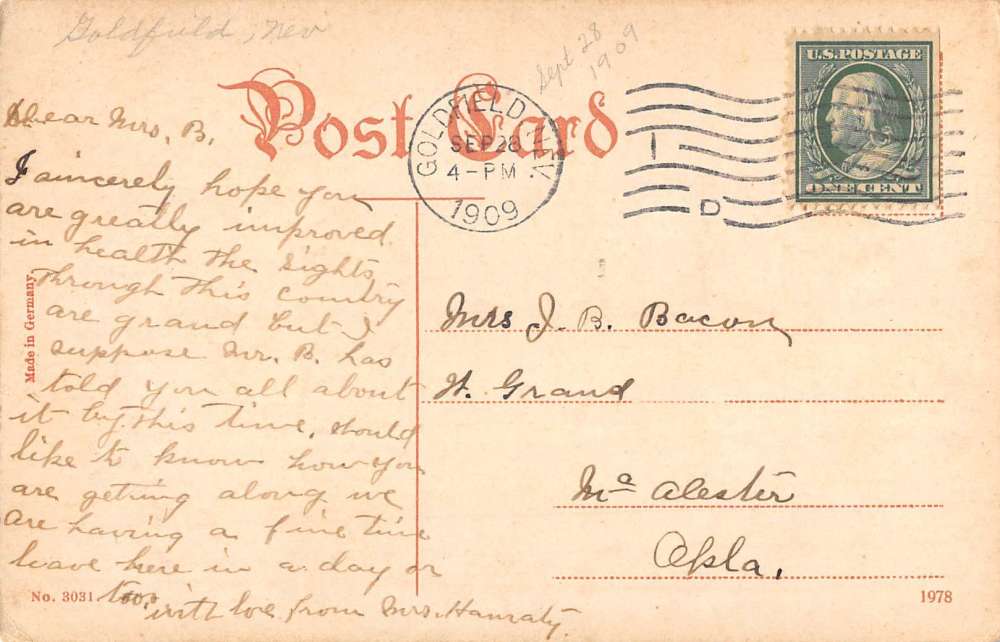 Goldfield, Nev
Sept 28
1909
Post Card
GOLDFIELD NEV.
SEP 28
4-PM
1909
D
U.S. POSTAGE
ONE CENT
Dear Mrs. B.
I sincerely hope you
are greatly improved
in health the sights
through this country
are grand but I
suppose Mr. B. has
told you all about
it by this time. should
like to know how you
are geting along we
are having a fine time
leave here in a day or
too.
with love from Mrs. Hanraty
Mrs J. B. Bacon
W. Grand
Mc alester
Okla.
Made in Germany
No. 3031.
1978